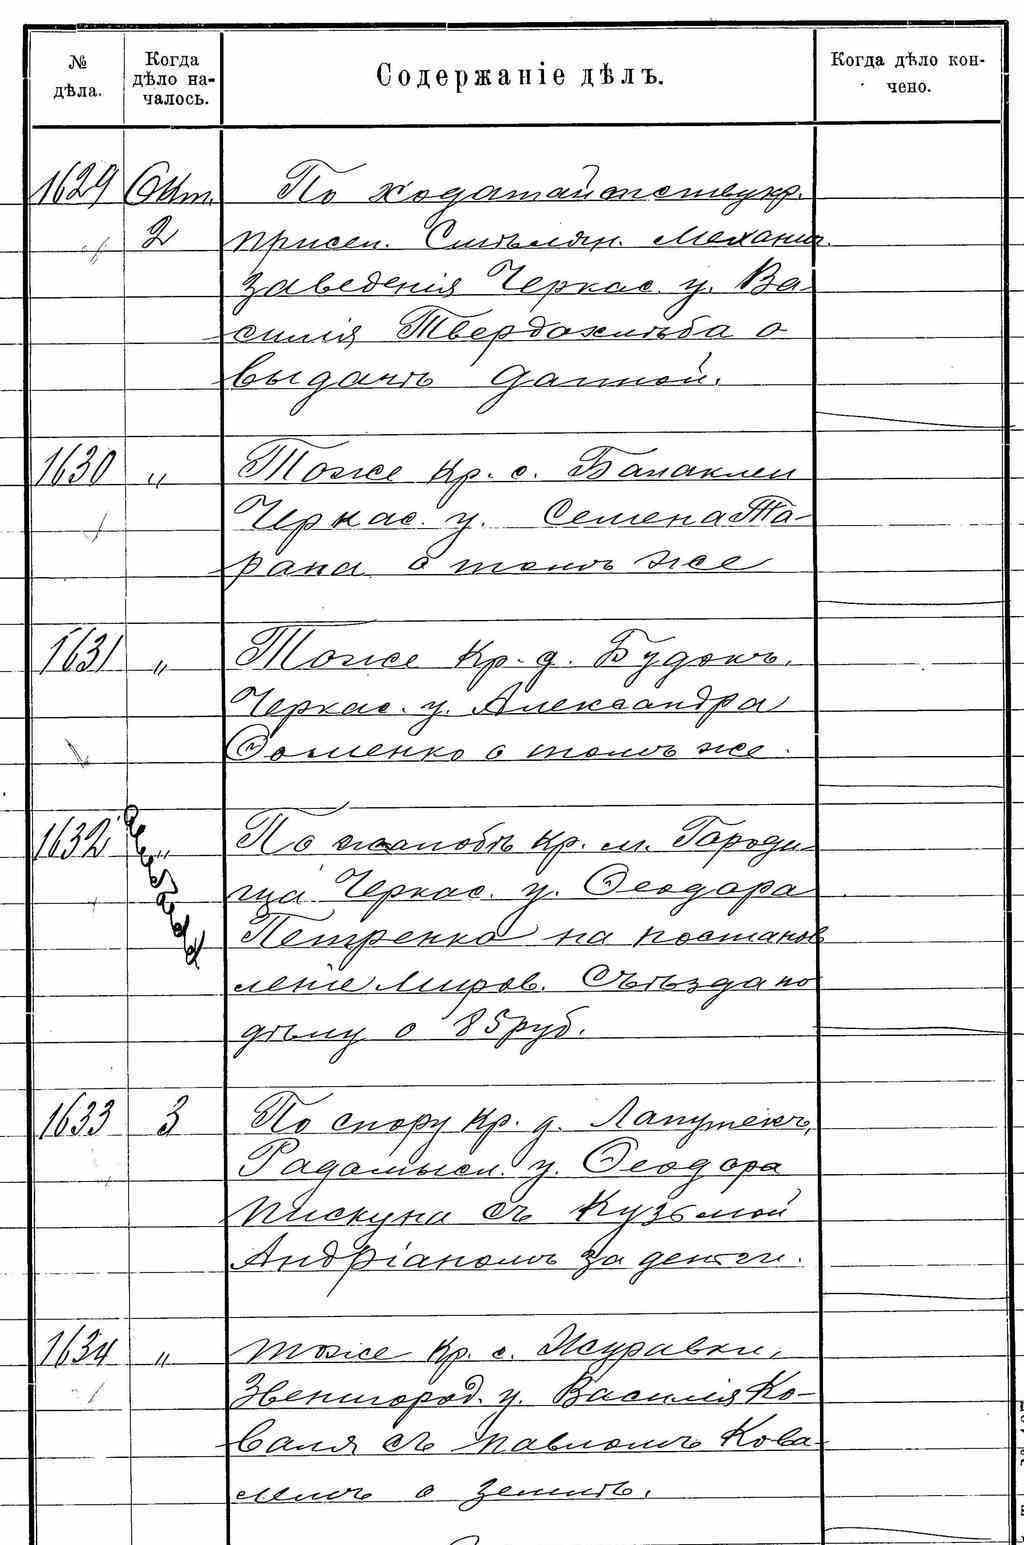 № дѣла.
Когда дѣло на-
чалось.
Содержаніе дѣлъ.
Когда дѣло кон-
чено.
1629 Окт. По ходатайствукр.
2 присел. Смѣлян. механич.
заведенія Черкас. у. Ва-
силія Твердохлѣба о
выдачѣ данной.
1630 „ Тоже кр. с. Балаклеи
Черкас. у. Семена Та-
рана о томъ же
1631 „ Тоже кр. д. Будокъ,
Черкас. у. Александра
Ѳоменко о томъ же.
1632 „ По жалобѣ кр. м. Городи-
ща Черкас. у. Ѳеодора
Петренко на постанов
леніе Миров. Съѣзда по
дѣлу о 85 руб.
1633 3 По спору кр. д. Лапутекъ,
Радомысл. у. Ѳеодора
Пискуна съ Кузьмой
Андріаномъ за деньги.
1634 „ тоже кр. с. Журавки,
Звенигород. у. Василія Ко-
валя съ Павломъ Кова-
лемъ о землѣ.